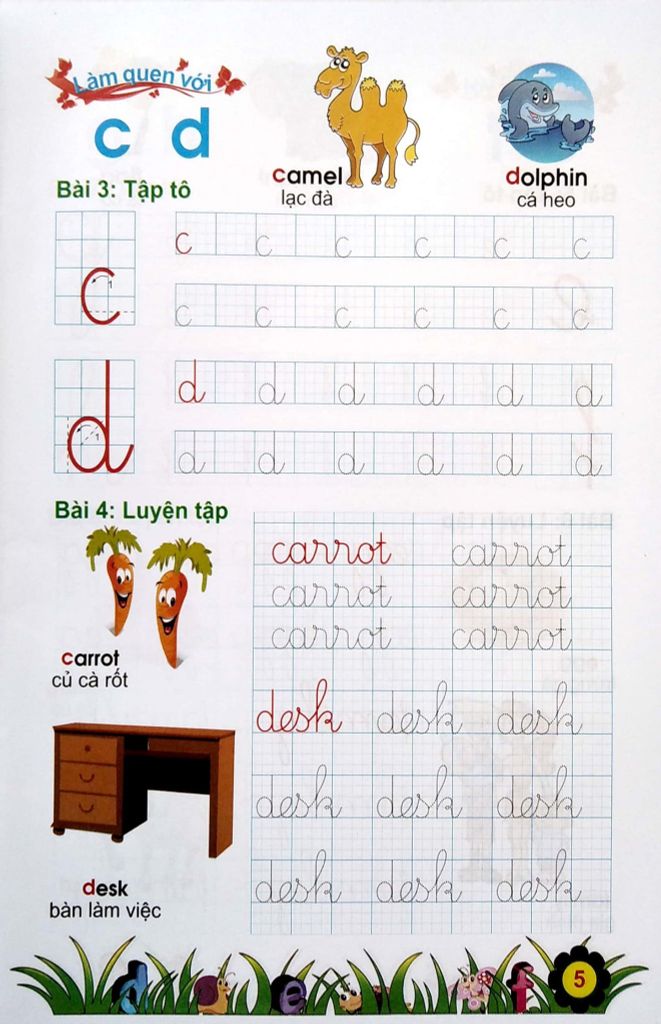 Làm quen với
c d
camel
lạc đà
dolphin
cá heo
Bài 3: Tập tô
c c c c c c c
1
c c c c c c
d d d d d d d
1
d d d d d d
Bài 4: Luyện tập
carrot carrot
carrot carrot
carrot carrot
carrot
củ cà rốt
desk desk desk
desk desk desk
desk desk desk
desk
bàn làm việc
d e f
5